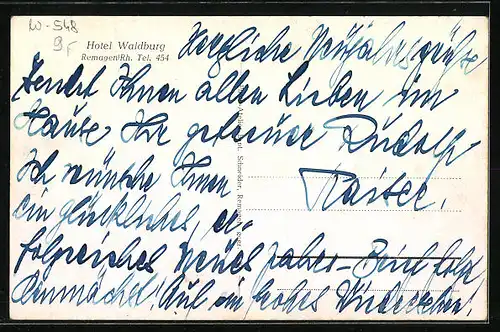 W-548
9F
Hotel Waldburg
Remagen/Rh. Tel. 454
Herzliche Neujahrsgrüße
sendet Ihnen allen Lieben im
Hause Ihr getreuer Rudolf
Kaiser.
Ich wünsche Ihnen
ein glückliches er-
folgreiches Neues Jahr – Brief folgt
demnächst! Auf ein frohes Wiedersehen!
Schneider, Remagen